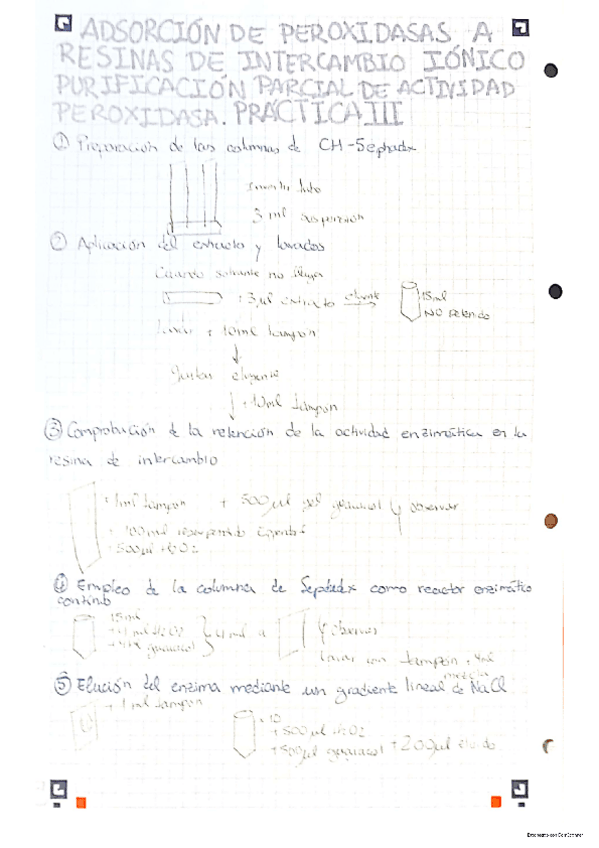 ADSORCIÓN DE PEROXIDASAS A
RESINAS DE INTERCAMBIO IÓNICO
PURIFICACIÓN PARCIAL DE ACTIVIDAD
PEROXIDASA. PRÁCTICA III
① Preparación de las columnas de CH-Sephadx
Invertir tubo
3 ml suspensión
② Aplicación del extracto y lavados
Cuando solvente no fluya
+ 3 µl extracto eluente
15 ml
NO retenido
Lavar + 10 ml tampón
Juntar
+ 10 ml tampón
③ Comprobación de la retención de la actividad enzimática en la
resina de intercambio
+ 1 ml tampon + 500 µl guaiacol y observar
+ 500 µl H2O2
④ Empleo de la columna de Sepadex como reactor enzimático
continuo
15 ml
4 ml a
Y observas
Lavar con tampón
⑤ Elución del enzima mediante un gradiente lineal de NaCl
+ 1 ml tampon
+ 500 µl H2O2
+ 500 µl guaiacol + 200 µl
Escaneado con CamScanner